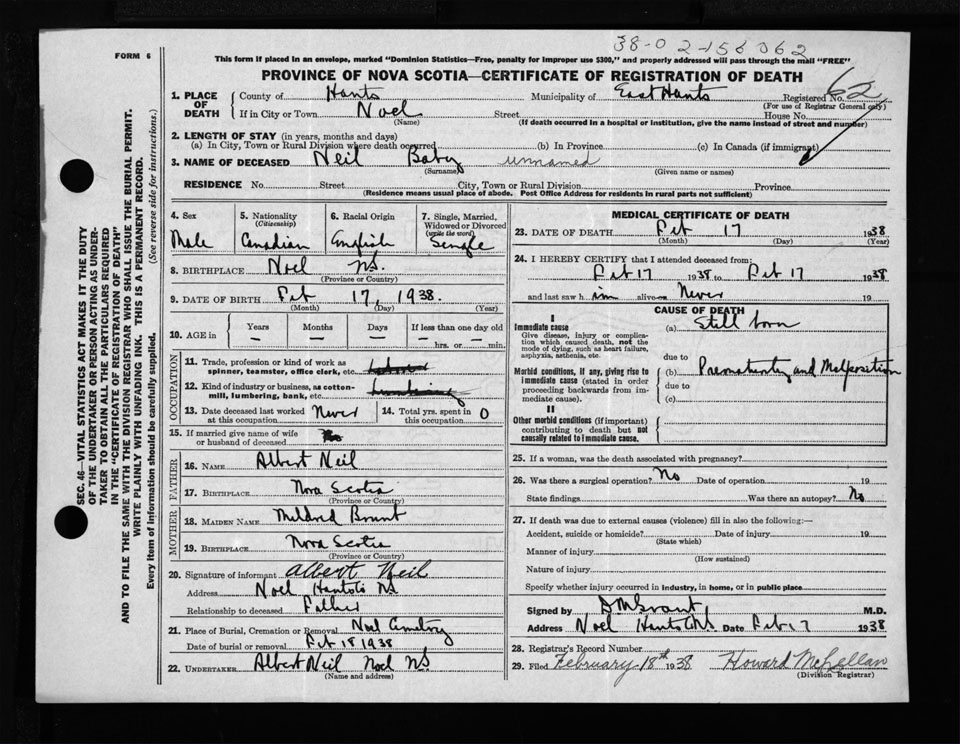 38-0 2-156062
FORM 6
This form if placed in an envelope, marked "Dominion Statistics—Free, penalty for improper use $300," and properly addressed will pass through the mail "FREE"
PROVINCE OF NOVA SCOTIA—CERTIFICATE OF REGISTRATION OF DEATH
1. PLACE OF DEATH
County of Hants Municipality of East Hants Registered No. 62
(For use of Registrar General only)
If in City or Town Noel Street House No.
(Name) (If death occurred in a hospital or institution, give the name instead of street and number)
2. LENGTH OF STAY (in years, months and days)
(a) In City, Town or Rural Division where death occurred (b) In Province (c) In Canada (if immigrant)
3. NAME OF DECEASED Neil Baby unnamed
(Surname) (Given name or names)
RESIDENCE No. Street City, Town or Rural Division Province
(Residence means usual place of abode. Post Office Address for residents in rural parts not sufficient)
4. Sex
Male
5. Nationality
(Citizenship)
Canadian
6. Racial Origin
English
7. Single, Married,
Widowed or Divorced
(write the word)
Single
8. BIRTHPLACE Noel N.S.
(Province or Country)
9. DATE OF BIRTH Feb 17, 1938.
(Month) (Day) (Year)
10. AGE in
Years
—
Months
—
Days
—
If less than one day old
— hrs. or — min.
OCCUPATION
11. Trade, profession or kind of work as
spinner, teamster, office clerk, etc.
12. Kind of industry or business, as cotton-
mill, lumbering, bank, etc.
13. Date deceased last worked
at this occupation Never
14. Total yrs. spent in
this occupation 0
15. If married give name of wife
or husband of deceased
FATHER
16. NAME Albert Neil
17. BIRTHPLACE Nova Scotia
(Province or Country)
MOTHER
18. MAIDEN NAME Mildred
19. BIRTHPLACE Nova Scotia
(Province or Country)
20. Signature of informant Albert Neil
Address Noel Hants Co NS
Relationship to deceased Father
21. Place of Burial, Cremation or Removal Noel Cemetery
Date of burial or removal Feb 18 1938
22. UNDERTAKER Albert Neil Noel NS
(Name and address)
MEDICAL CERTIFICATE OF DEATH
23. DATE OF DEATH Feb 17 1938
(Month) (Day) (Year)
24. I HEREBY CERTIFY that I attended deceased from:
Feb 17 1938 to Feb 17 1938
and last saw him alive on Never 19
CAUSE OF DEATH
I
Immediate cause
Give disease, injury or complica-
tion which caused death, not the
mode of dying, such as heart failure,
asphyxia, asthenia, etc.
(a) Still born
due to
Morbid conditions, if any, giving rise to
immediate cause (stated in order
proceeding backwards from im-
mediate cause).
(b) Prematurity and Malposition
due to
(c)
II
Other morbid conditions (if important)
contributing to death but not
causally related to immediate cause.
25. If a woman, was the death associated with pregnancy?
26. Was there a surgical operation? No Date of operation 19
State findings Was there an autopsy? No
27. If death was due to external causes (violence) fill in also the following:—
Accident, suicide or homicide? Date of injury 19
(State which)
Manner of injury
(How sustained)
Nature of injury
Specify whether injury occurred in industry, in home, or in public place
Signed by M.D.
Address Noel Hants Co NS Date Feb 17 1938
28. Registrar's Record Number
29. Filed February 18th 1938 Howard McLellan
(Division Registrar)
SEC. 46—VITAL STATISTICS ACT MAKES IT THE DUTY
OF THE UNDERTAKER OR PERSON ACTING AS UNDER-
TAKER TO OBTAIN ALL THE PARTICULARS REQUIRED
IN THE "CERTIFICATE OF REGISTRATION OF DEATH"
AND TO FILE THE SAME WITH THE DIVISION REGISTRAR WHO SHALL ISSUE THE BURIAL PERMIT.
WRITE PLAINLY WITH UNFADING INK. THIS IS A PERMANENT RECORD.
Every item of information should be carefully supplied. (See reverse side for instructions.)